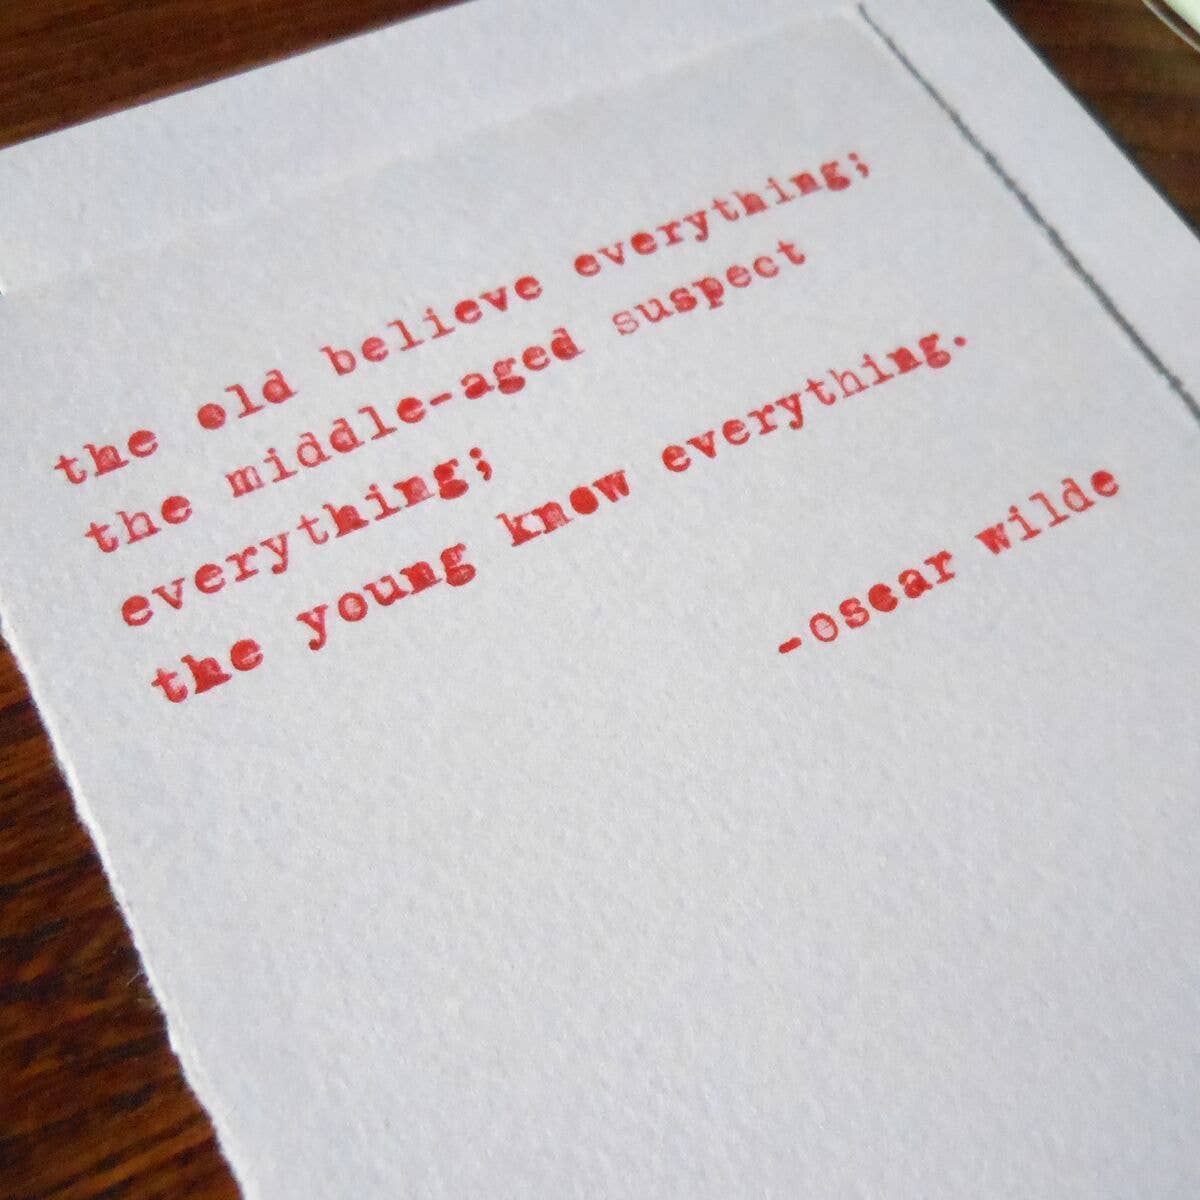 the old believe everything;
the middle-aged suspect
everything;
the young know everything.
-oscar wilde